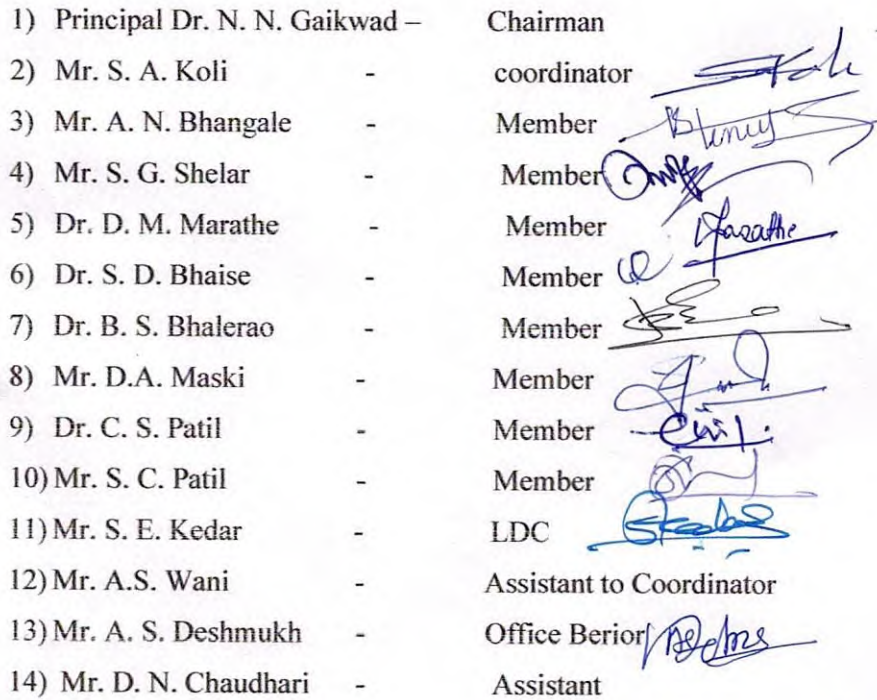 1) Principal Dr. N. N. Gaikwad – Chairman
2) Mr. S. A. Koli - coordinator
3) Mr. A. N. Bhangale - Member
4) Mr. S. G. Shelar - Member
5) Dr. D. M. Marathe - Member Marathe
6) Dr. S. D. Bhaise - Member
7) Dr. B. S. Bhalerao - Member
8) Mr. D.A. Maski - Member
9) Dr. C. S. Patil - Member
10) Mr. S. C. Patil - Member
11) Mr. S. E. Kedar - LDC
12) Mr. A.S. Wani - Assistant to Coordinator
13) Mr. A. S. Deshmukh - Office Berior
14) Mr. D. N. Chaudhari - Assistant